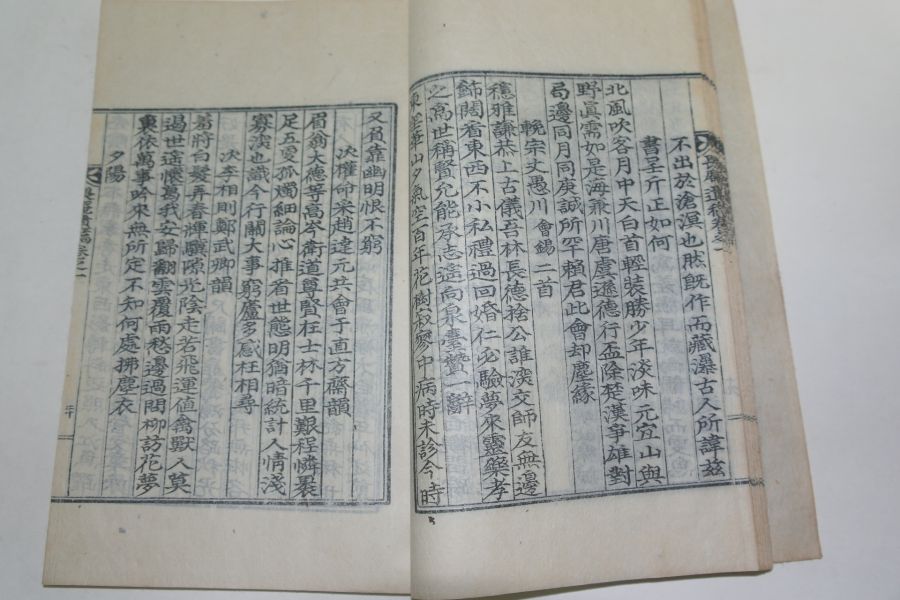 不出於滄溟也然旣作而藏瀑古人所諱玆
書呈斤正如何
北風吹客月中天白首輕裝勝少年淡味元宜山與
野眞需如是海兼川唐虞遜德行盃降楚漢爭雄對
局邊同月同庚誠所罕賴君此會却塵緣
輓宗丈愚川 會錫 二首
穩雅謙恭上古儀吾林長德捨公誰深交師友無邊
飾闊看東西不小私禮過回婚仁必驗夢來靈藥孝
之高世稱賢允能承志遙向泉臺贊一辭
山夕氣空百年花樹寂寥中病時未診今時
又負靠幽明恨不窮
次權命采趙達元共會于直方齋韻
眉翁大德等高岑衛道尊賢枉士林千里艱程憐裹
足五更孤燭細論心推看世態明猶暗統計人情淺
寡深也識今行關大事窮廬多感枉相尋
次李相則鄭武卿韻
羞將白髮再春輝驥隙光陰走若飛運值禽獸人莫
遏世遙懷葛我安歸翻雲覆雨愁邊過問柳訪花夢
裏依萬事吟來無所定不知何處拂塵衣
夕陽